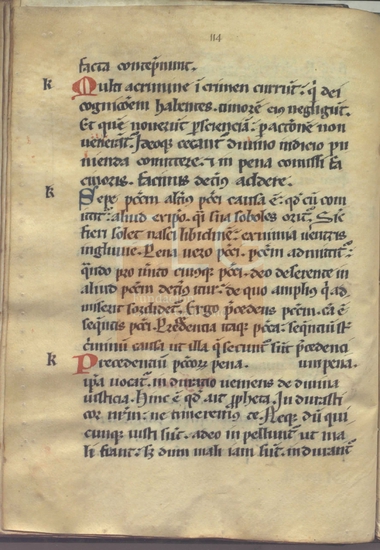 114
facta contempnunt.
k Multi a crimine i crimen currunt. q dei
cognicionem habentes. timorem eius negligunt.
Et quem noverunt per scienciam. per actionem non
venerant. Ideoque cecantur divino iudicio pu
nienda comittere. & in pena comissi fa
cinoris. facinus deterius addere.
k Sepe peccatum alterius peccati causa est. quod cum com
mittitur. aliud ex ipo. quasi sua soboles oritur. Sic
fieri solet nasci libidinem. ex nimia ventris
ingluvie. Pena vero peccati. peccatum admittitur.
quando pro merito cuiusque peccati. deo deserente in
aliud peccatum deterius itur. de quo amplius qui ad
miserit sordidetur. Ergo precedens peccatum. causa est
sequentis peccati. Precedencia itaque peccata. sequencium sunt
criminum causa ut illa que secuntur sint precedenci
k Precedencium peccatorum pena. um pena.
ipa vocatur. in duratio veniens de divina
iusticia. Hinc est quod ait propheta. Indurasti
cor nostrum. ne timeremus te. Neque dum qui
cunque iusti sunt. a deo in pelluntur ut ma
li fiant. sed dum mali iam sunt. indurantur